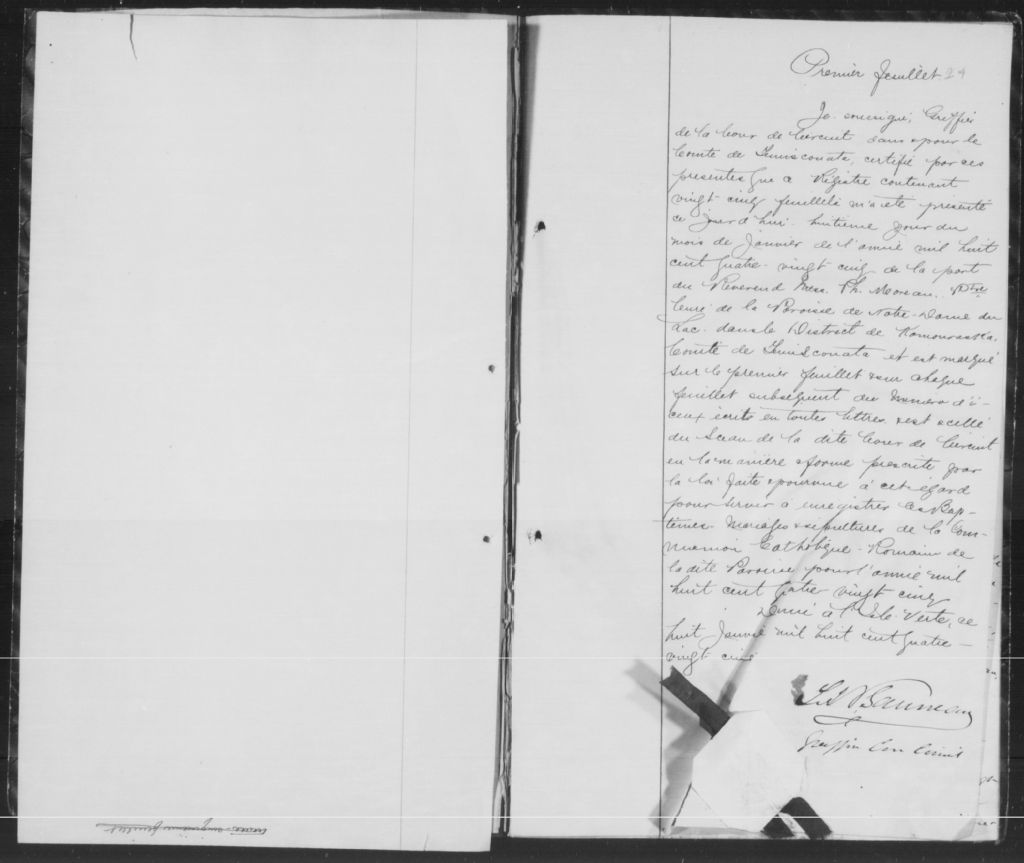 Premier feuillet 24
Je soussigné, Greffier
de la Cour de Circuit dans & pour le
Comté de Temisconata, certifie par ces
presentes que ce Régistre contenant
vingt-cinq feuillets m'a été présenté
ce jourd'hui huitieme jour du
mois de Janvier de l'année mil huit
cent quatre-vingt cinq de la part
du Révérend Mess. Ph. Moreau, Ptre
Curé de la Paroisse de Notre-Dame du
Lac dans le District de Kamouraska,
Comté de Temisconata et est marqué
sur le premier feuillet & sur chaque
feuillet subséquent du numéro d'i-
ceux écrits en toutes lettres & est scellé
du Sceau de la dite Cour de Circuit
en la manière & forme prescrite par
la loi faite & pourvue à cet égard
pour servir à enregistrer les Bap-
têmes Mariages & sépultures de la Com-
munion Catholique-Romaine de
la dite Paroisse pour l'année mil
huit cent quatre vingt cinq
Donné à l'Isle-Verte, ce
huit Janvier mil huit cent quatre-
vingt cinq
Greffier Cour Circuit